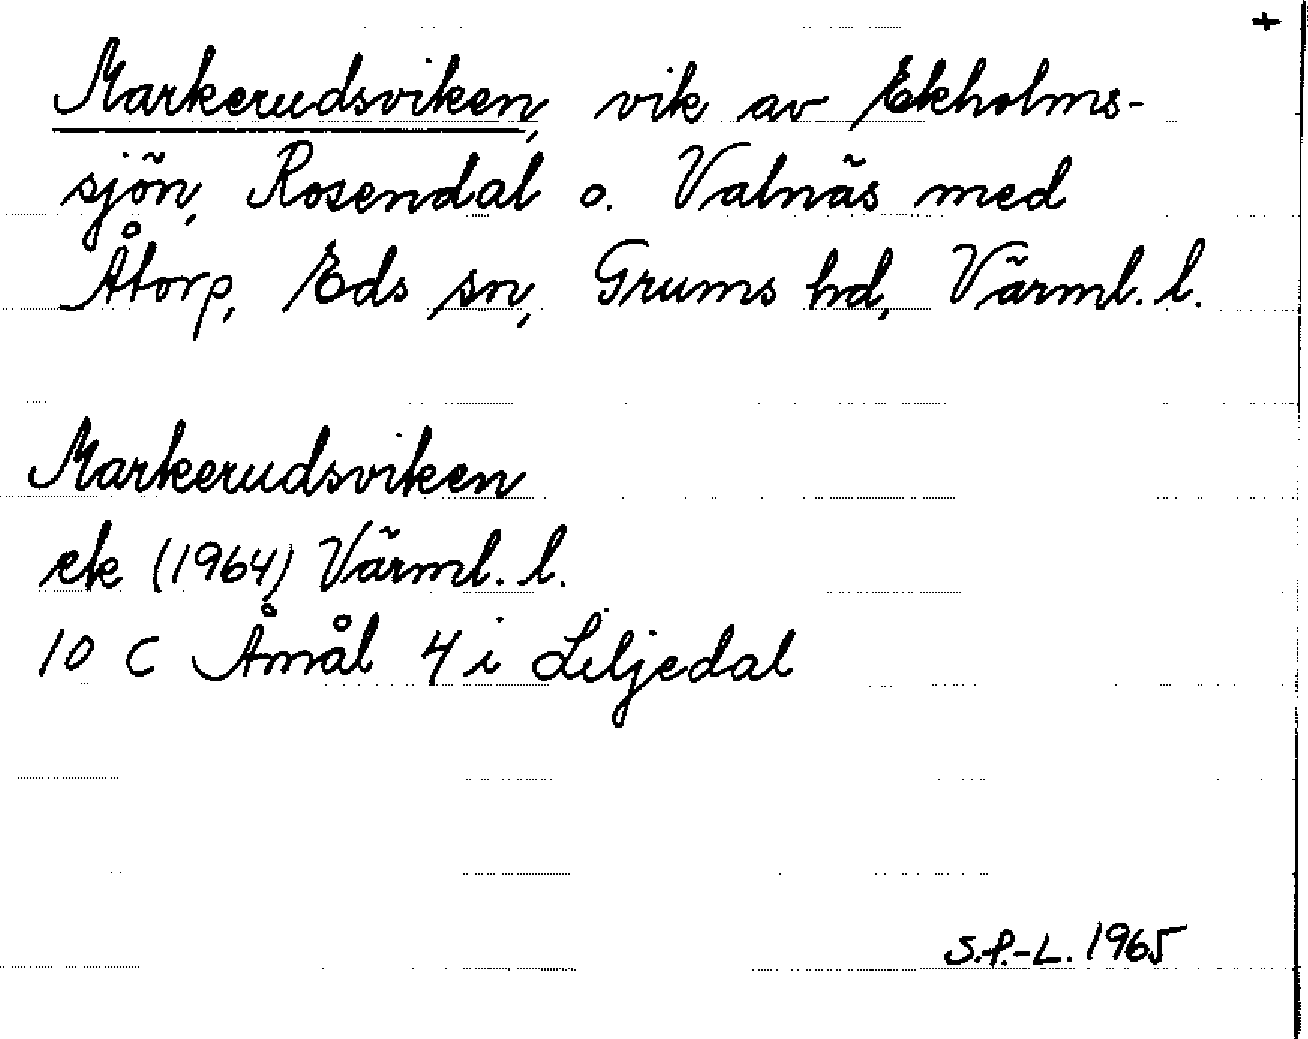 +
Markerudsviken, vik av Ekholms-
sjön, Rosendal o. Valnäs med
Åtorp, Eds sn, Grums hd, Värml. l.
Markerudsviken
ek (1964) Värml. l.
10 C Åmål 4 i Liljedal
S.P.-L. 1965